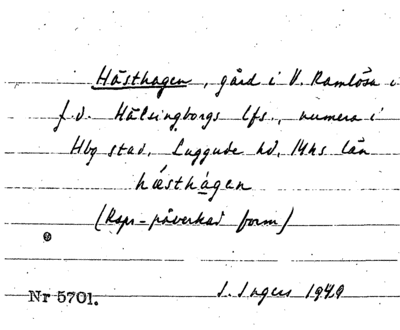 Hästhagen, gård i V. Ramlösa i
f.d. Hälsingborgs lfs., numera i
Hbg stad, Luggude hd, Mhs län
hǽsthàgen
(Rspr-påverkad form)
Nr 5701. S. Ingers 1949